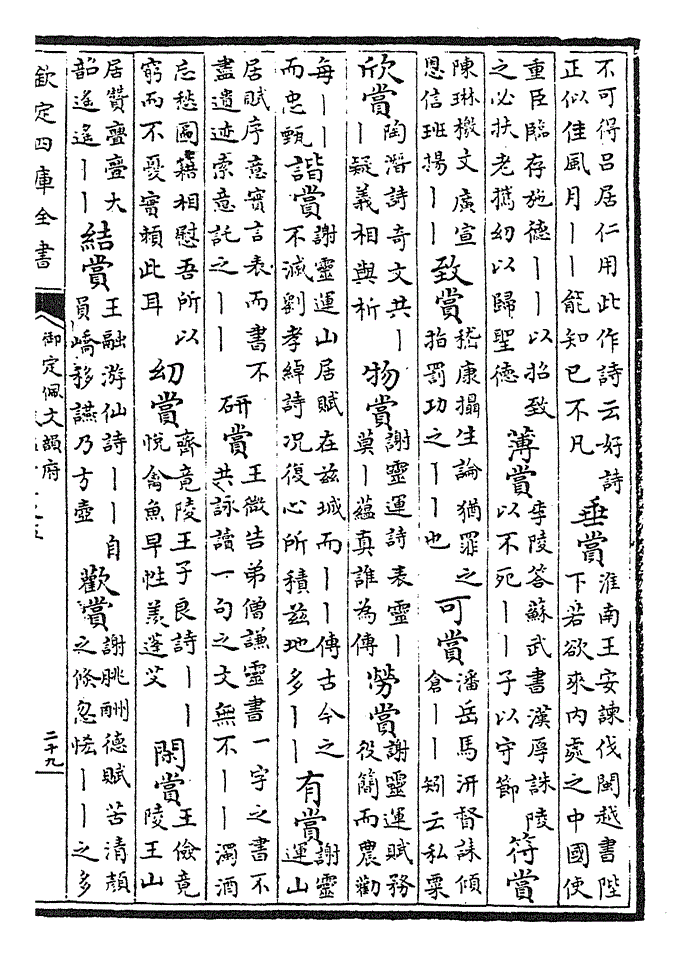 不可得呂居仁用此作詩云好詩
正似佳風月丨丨能知已不凡
垂賞
淮南王安諫伐閩越書陛
下若欲來內處之中國使
重臣臨存施德丨丨以招致
之必扶老攜幼以歸聖德
薄賞
李陵答蘇武書漢厚誅陵
以不死丨丨子以守節
符賞
陳琳檄文廣宣
恩信班揚丨丨
致賞
嵇康攝生論猶罪之
指罰功之丨丨也
可賞
潘岳馬汧督誄傾
倉丨丨矧云私粟
欣賞
陶潛詩奇文共丨
丨疑義相與析
物賞
謝靈運詩表靈丨
莫丨蘊真誰為傳
勞賞
謝靈運賦務
役簡而農勸
每丨丨
而忠甄
諧賞
謝靈運山居賦在兹城而丨丨傳古今之
不滅劉孝綽詩况復心所積兹地多丨丨
有賞
謝靈
運山
居賦序意實言表而書不
盡遺迹索意託之丨丨
研賞
王微告弟僧謙靈書一字之書不
共詠讀一句之文無不丨丨濁酒
忘愁圖籍相慰吾所以
窮而不憂實賴此耳
幼賞
齊竟陵王子良詩丨丨
悅禽魚早性羨蓬艾
閑賞
王儉竟
陵王山
居贊亹亹大
韶遙遙丨丨
結賞
王融游仙詩丨丨自
員嶠移讌乃方壺
歡賞
謝朓酬德賦苦清顏
之倏忽恡丨丨之多
欽定四庫全書
御定佩文韻府
二十九